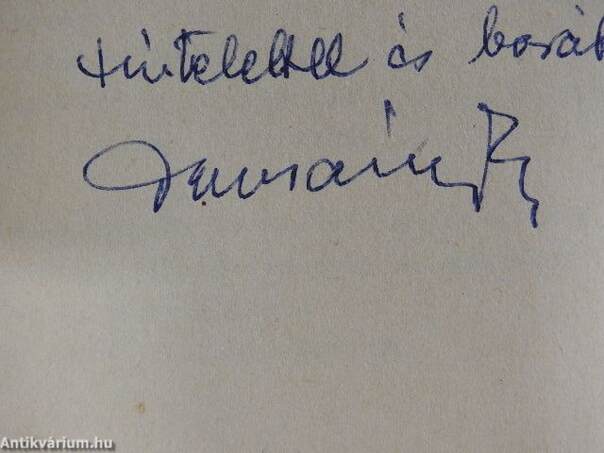 tisztelettel és barát
Antikvárium.hu